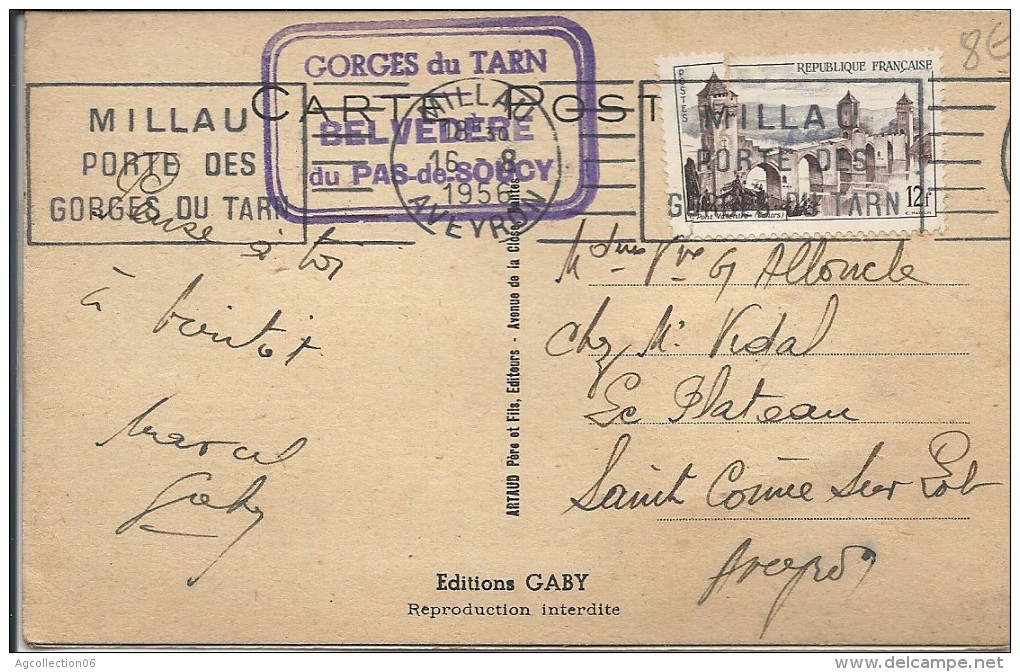 8€
GORGES du TARN
BELVÉDÈRE
du PAS-de-SOUCY
CARTE POST
MILLAU
PORTE DES
GORGES DU TARN
MILLAU
18H30
16 - 8
1956
AVEYRON
POSTES
REPUBLIQUE FRANÇAISE
12F
Pont Valentré (Cahors)
MILLAU
PORTE DES
GORGES DU TARN
Pense à toi
à bientôt
Marcel
Gaby
ARTAUD Père et Fils, Editeurs - Avenue de la Close Nantes
Vve G Alloncle
Chez Mr Vidal
Le Plateau
Saint Côme Sur Lot
Aveyron
Editions GABY
Reproduction interdite
Agcollection06
www.delcampe.net